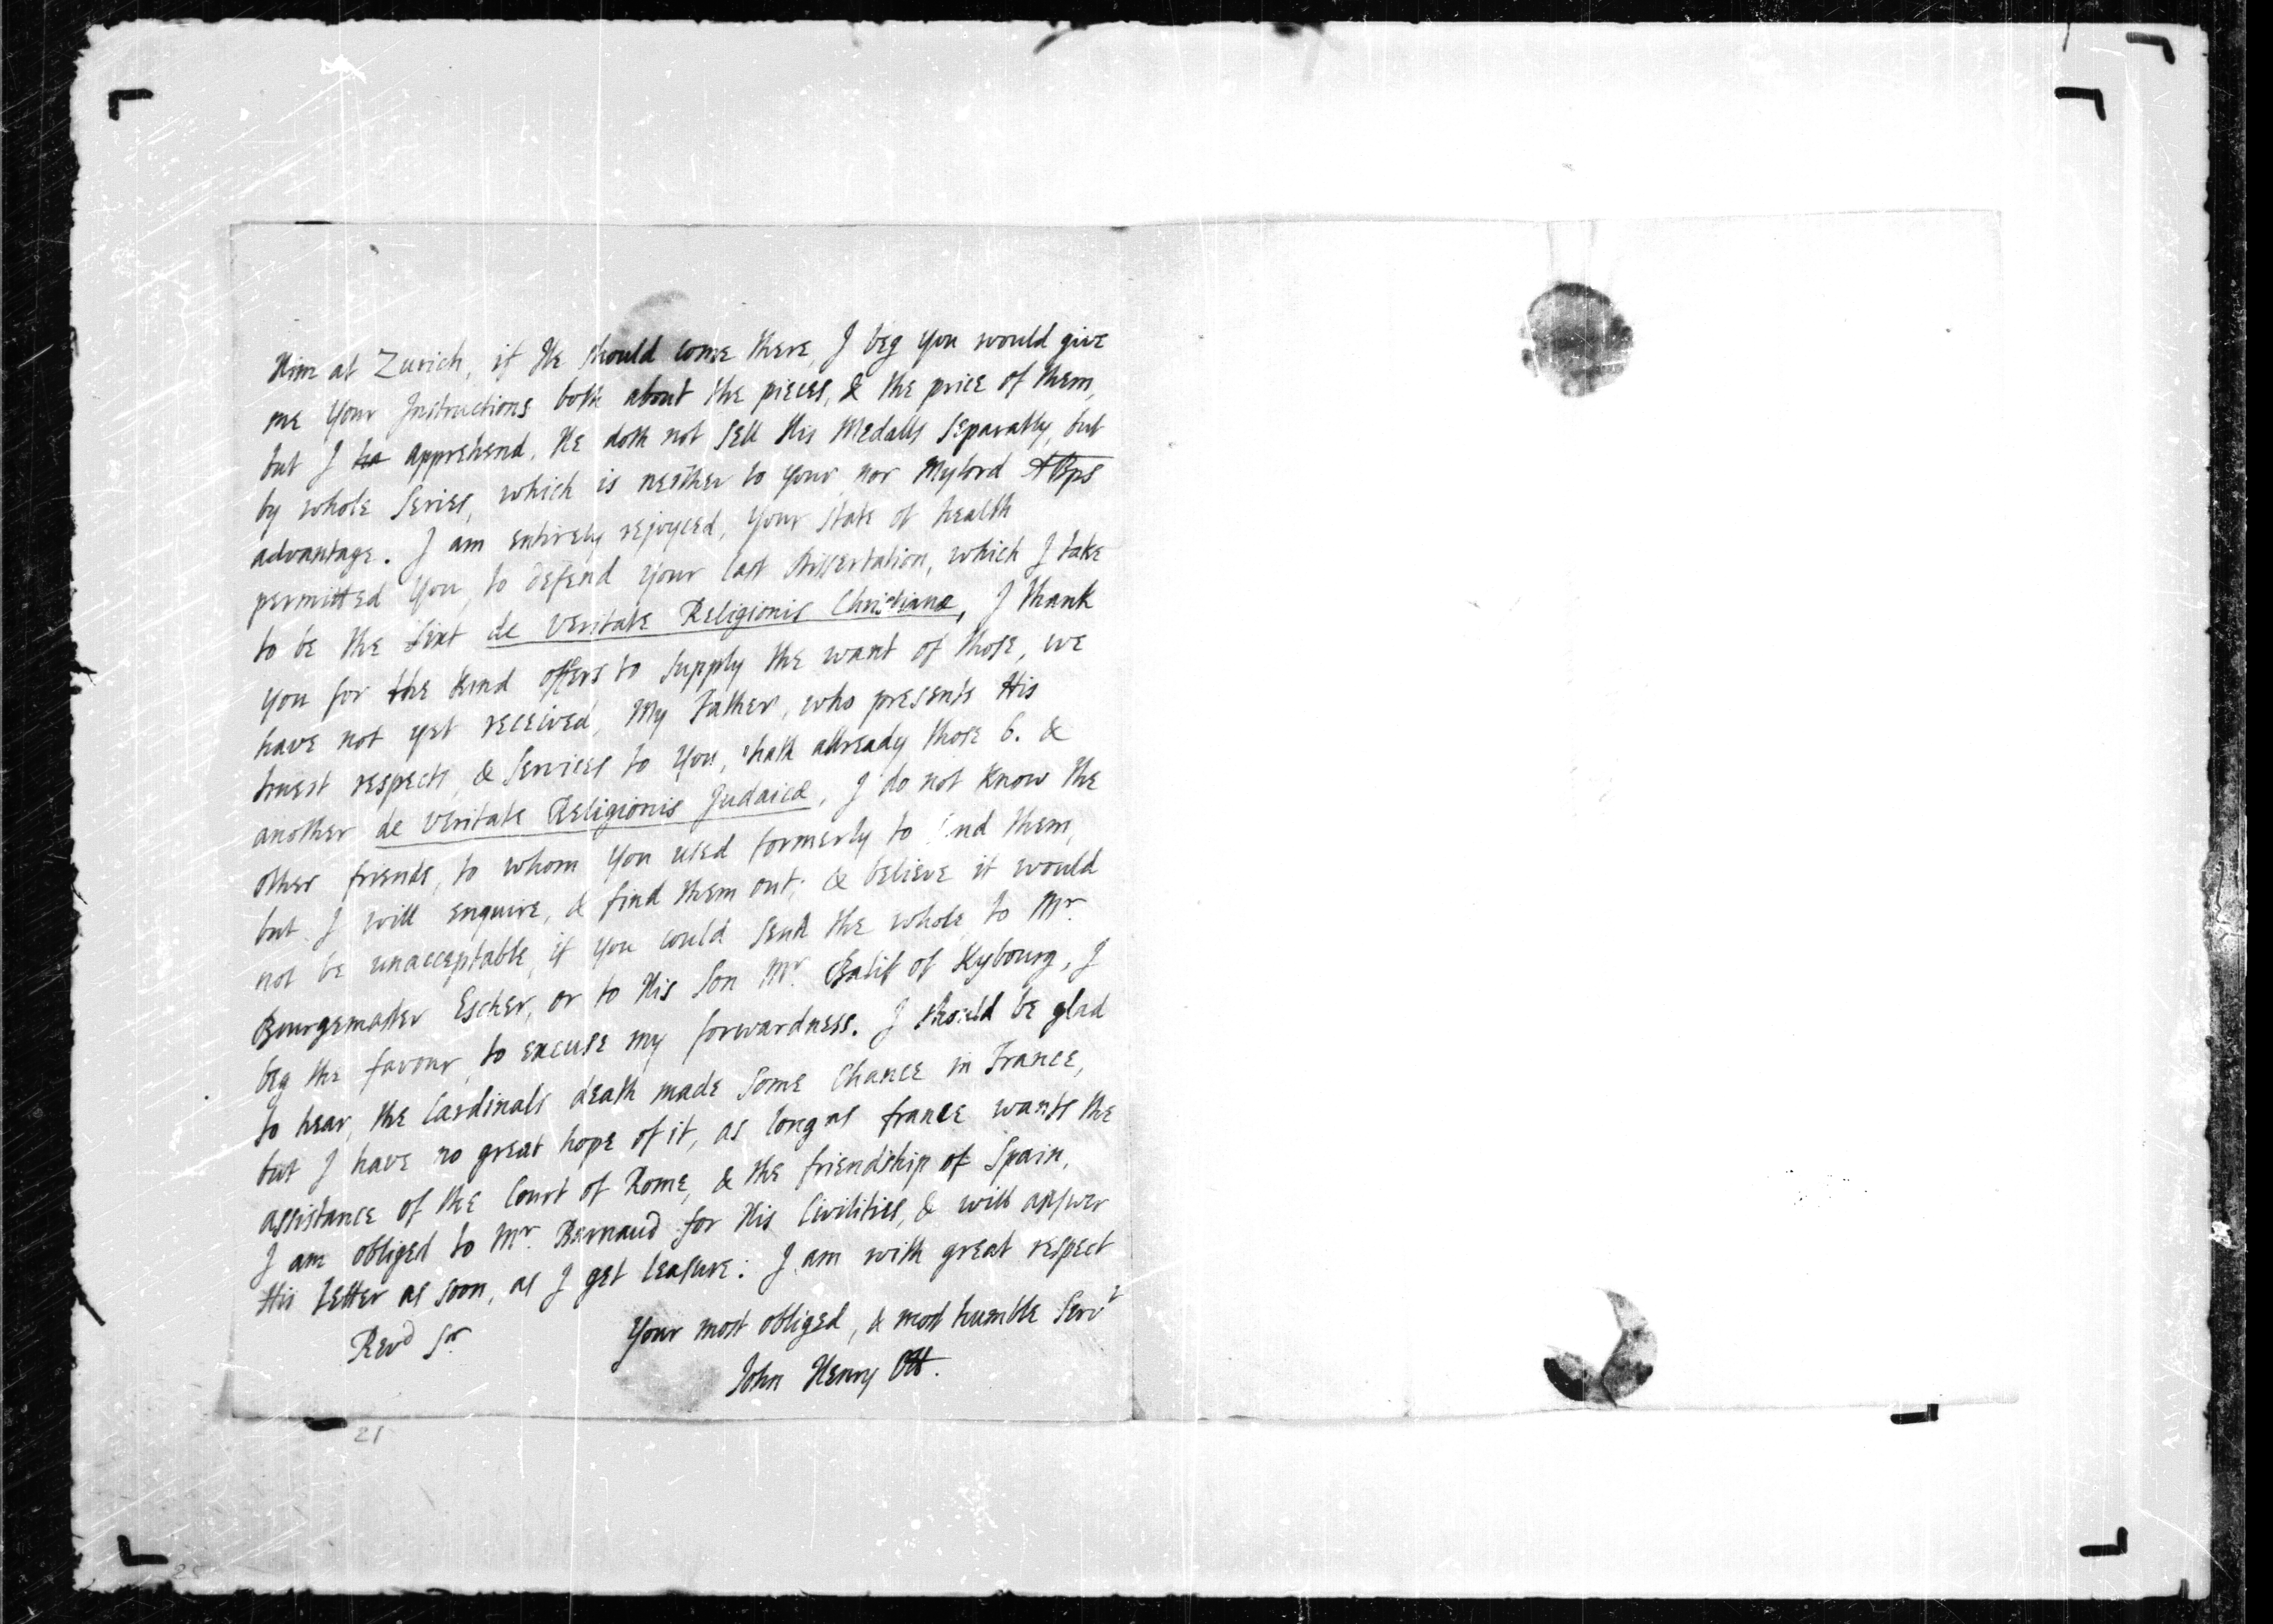 Him at Zurich, if He should come there, I beg you would give
me your Instructions both about the pieces, & the price of them,
but I ha apprehend, He doth not sell His Medalls separatly, but
by whole Series, which is neither to your nor Mylord ABps
advantage. I am entirely rejoyced, your state of health
permitted you, to defend your last Dissertation, which I take
to be the sixt de Veritate Religionis Christianæ, I thank
you for the kind offers to supply the want of those, we
have not yet received, My Father, who presents His
truest respects, & Services to you, hath allready those 6. &
another de Veritate Religionis Judaicæ, I do not know the
other friends, to whom you used formerly to nd them,
but I will enquire, & find them out; & believe it would
not be unacceptable, if you could send the whole to Mr.
Bourgemaster Escher, or to His Son Mr. Balif of Kybourg, I
beg the favour, to excuse my forwardness. I should be glad
to hear, the Cardinals death made some Chance in France,
but I have no great hope of it, as long as france wants the
assistance of the Court of Rome, & the friendship of Spain,
I am obliged to Mr. Barnaud for His Civilities, & will answer
His Letter as soon, as I get leasure. I am with great respect
Revd Sr
Your most obliged, & most humble Servt
John Henry Ott.
21
25